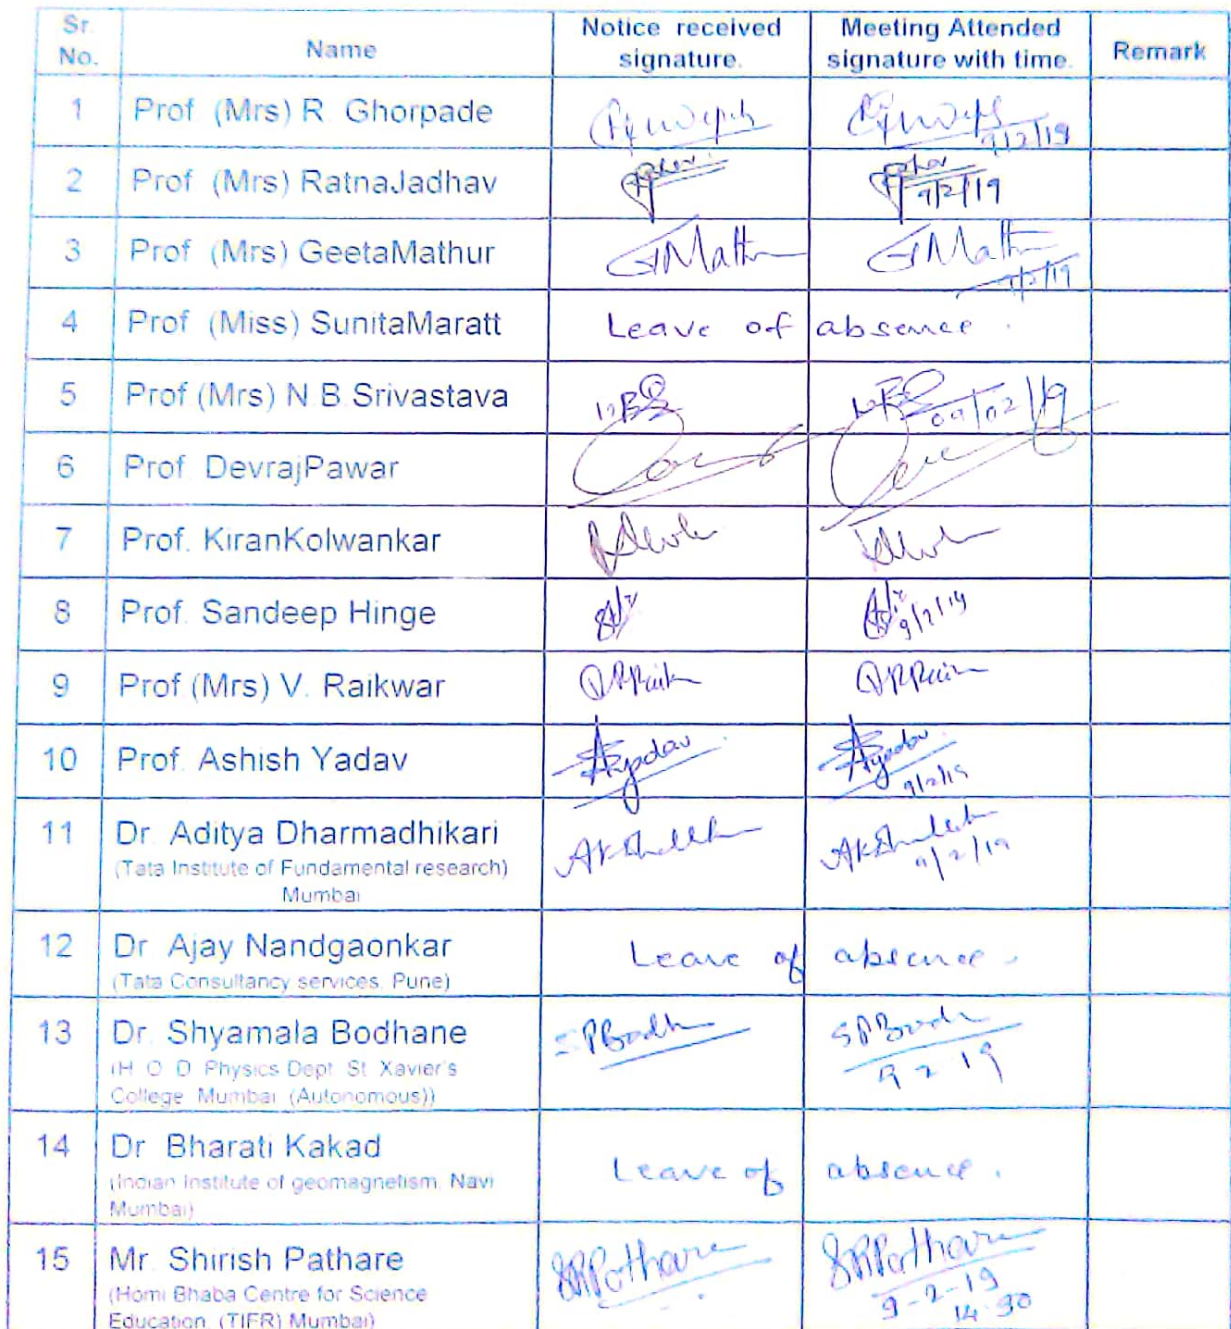 Sr. No. Name Notice received signature. Meeting Attended signature with time. Remark
1 Prof (Mrs) R Ghorpade
9/2/19
2 Prof (Mrs) RatnaJadhav
9/2/19
3 Prof (Mrs) GeetaMathur GMath GMath
9/2/19
4 Prof (Miss) SunitaMaratt Leave of absence.
5 Prof (Mrs) N.B.Srivastava NBS NBS 09/02/19
6 Prof. DevrajPawar
7 Prof. KiranKolwankar
8 Prof. Sandeep Hinge
9/2/19
9 Prof (Mrs) V. Raikwar
10 Prof. Ashish Yadav Ayadav Ayadav
9/2/19
11 Dr. Aditya Dharmadhikari
(Tata Institute of Fundamental research)
Mumbai
9/2/19
12 Dr Ajay Nandgaonkar Leave of absence.
(Tata Consultancy services, Pune)
13 Dr. Shyamala Bodhane SPBodh SPBodh
(H.O.D. Physics Dept. St. Xavier's
9 2 19
College, Mumbai (Autonomous))
14 Dr Bharati Kakad Leave of absence.
(Indian Institute of geomagnetism, Navi
Mumbai)
15 Mr. Shirish Pathare SRPathare SRPathare
(Homi Bhaba Centre for Science
9-2-19
Education, (TIFR) Mumbai)
14.30